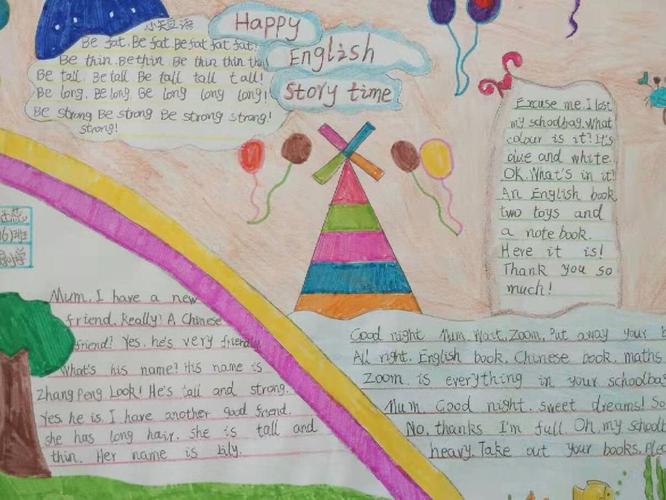 Happy
English
Story time
Be fat. Be fat Be fat fat fat!
Be thin. Be thin Be thin thin thin
Be tall. Be tall Be tall tall tall!
Be long. Be long Be long long long!
Be strong Be strong Be strong strong!
strong!
Excuse me I lost
my schoolbag. What
colour is it? It's
blue and white.
OK. What's in it?
An English book
two toys and
a note book.
Here it is!
Thank you so
much!
Mum, I have a new
friend. Really? A Chinese
friend? Yes, he's very friendly.
What's his name? His name is
Zhang Peng. Look! He's tall and strong.
Yes, he is. I have another good friend.
She has long hair. She is tall and
thin. Her name is
Good night Mum. Wait, Zoom. Put away your
All right. English book, Chinese book, maths
Zoom. is everything in your
Mum. Good night. sweet dreams!
No, thanks I'm full Oh, my
heavy. Take out your books,